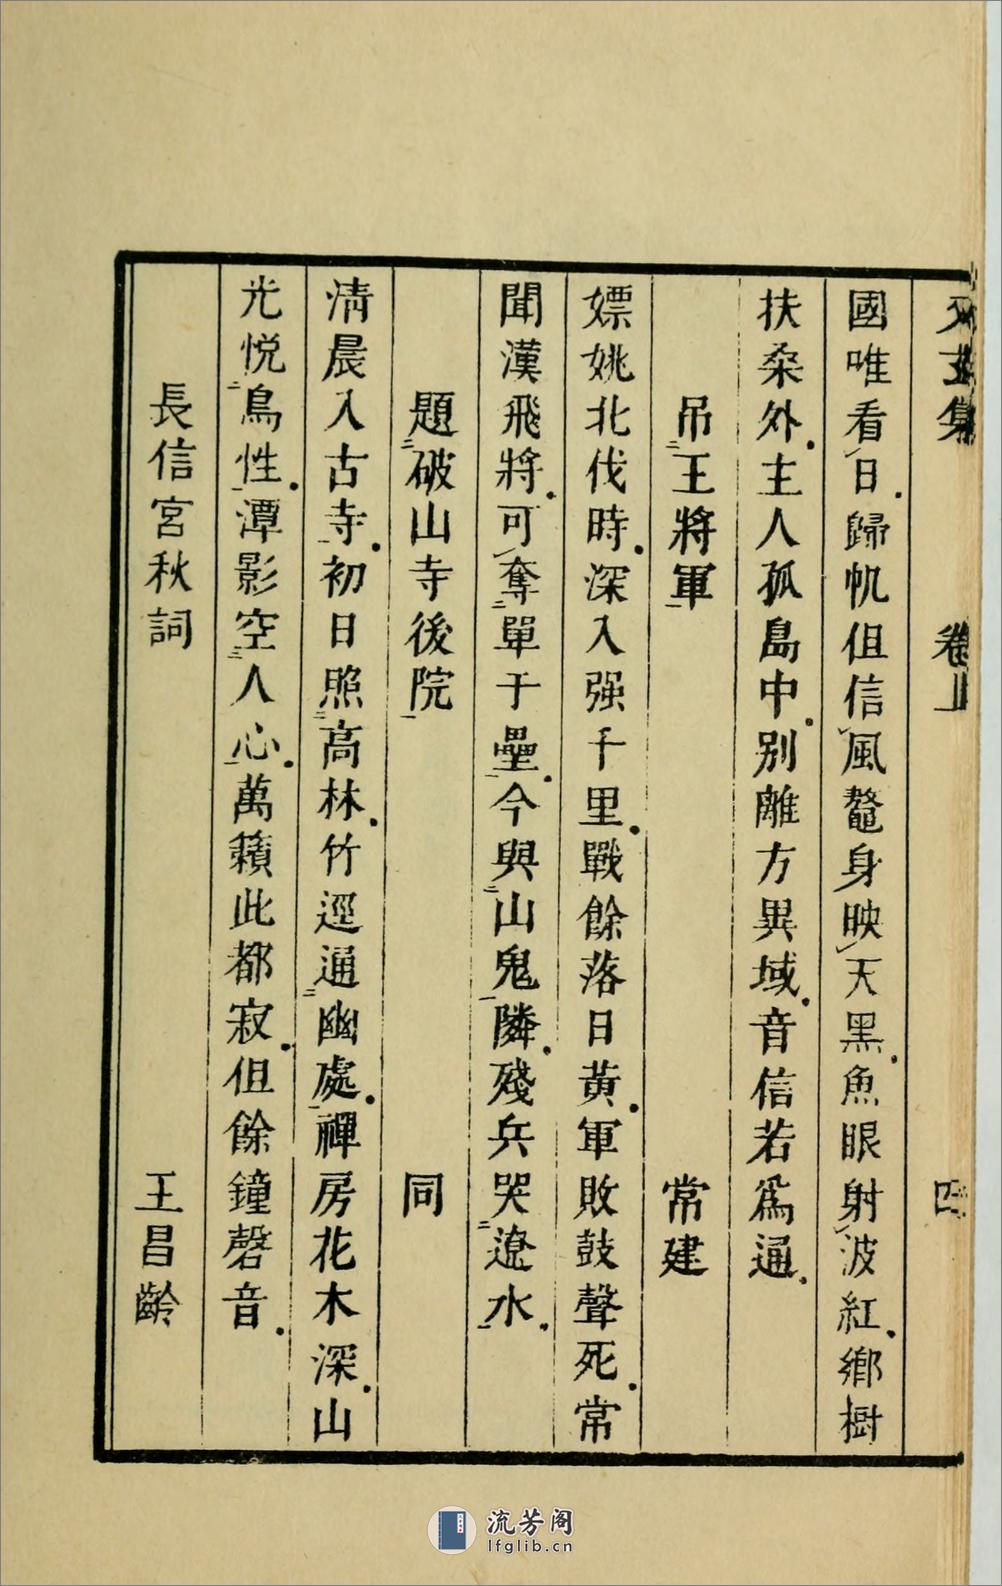 又玄集 卷上 四
國唯看日歸帆但信風鼇身映天黑魚眼射波紅鄉樹
扶桑外主人孤島中别離方異域音信若爲通
吊王將軍 常建
嫖姚北伐時深入强千里戰餘落日黄軍敗鼓聲死常
聞漢飛將可奪單于壘今與山鬼隣殘兵哭遼水
題破山寺後院 同
清晨入古寺初日照高林竹逕通幽處禪房花木深山
光悦鳥性潭影空人心萬籟此都寂但餘鐘磬音
長信宮秋詞 王昌齡
流芳阁
lfglib.cn